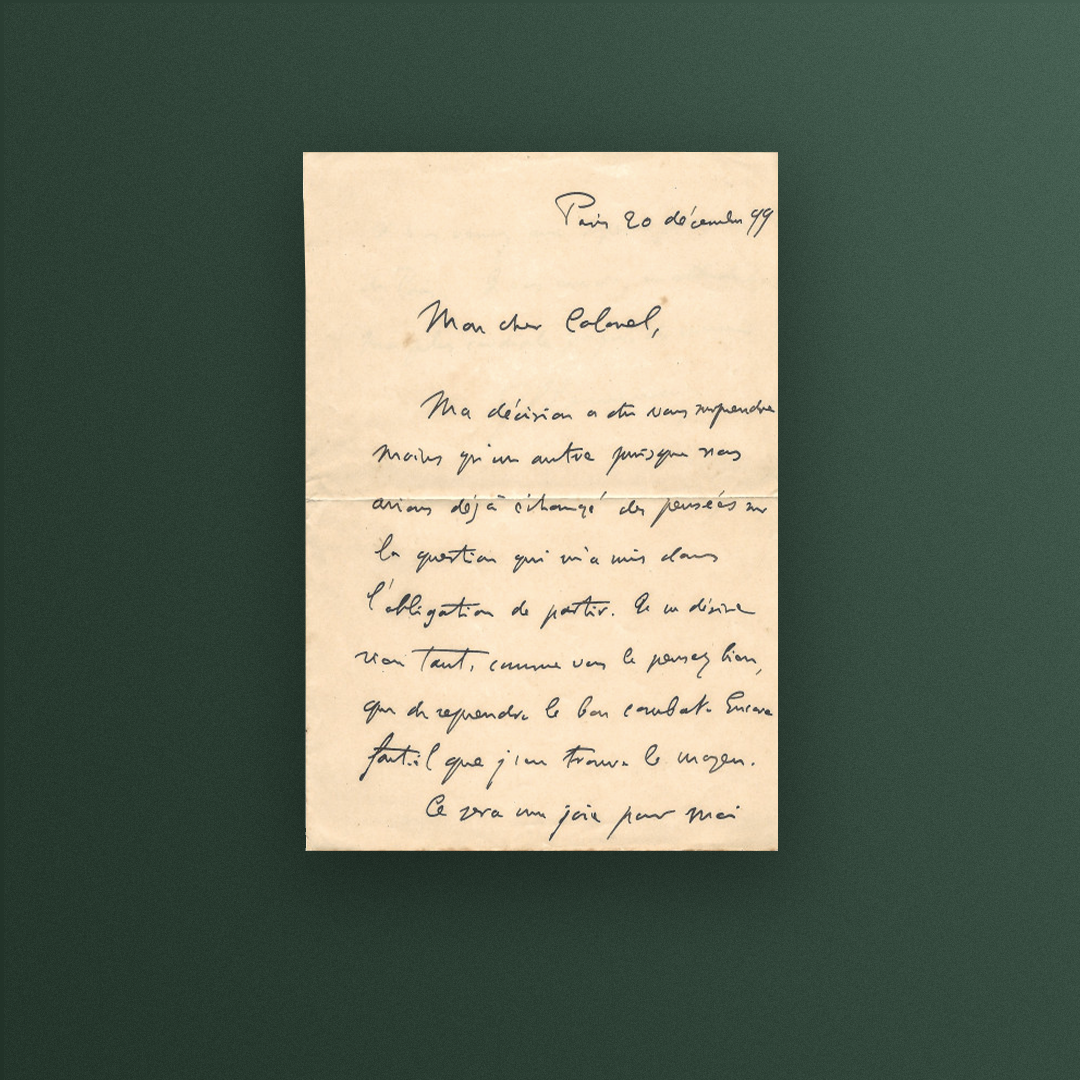 Paris 20 décembre 99
Mon cher Colonel,
Ma décision a dû vous surprendre
moins qu'un autre puisque nous
avions déjà échangé des pensées sur
la question qui m'a mis dans
l'obligation de partir. Je ne désire
rien tant, comme vous le pensez bien,
que de reprendre le bon combat. Encore
faut-il que j'en trouve le moyen.
Ce sera une joie pour moi